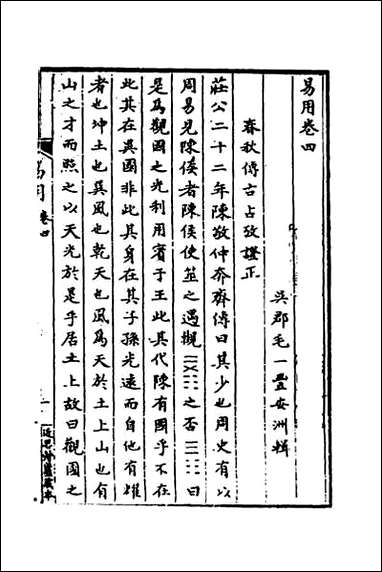 易用卷四
吳郡毛一豐安洲輯
春秋傳古占攷證正
莊公二十二年陳敬仲奔齊傳曰其少也周史有以
周易見陳侯者陳侯使筮之遇觀☴☷之否☰☷曰
是爲觀國之光利用賓于王此其代陳有國乎不在
此其在異國非此其身在其子孫光遠而自他有燿
者也坤土也巽風也乾天也風爲天於土上山也有
山之才而照之以天光於是乎居土上故曰觀國之
易用 卷四